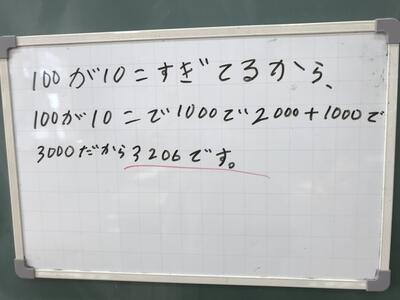 100が10こすぎてるから、
100が10こで1000で2000+1000で
3000だから3206です。